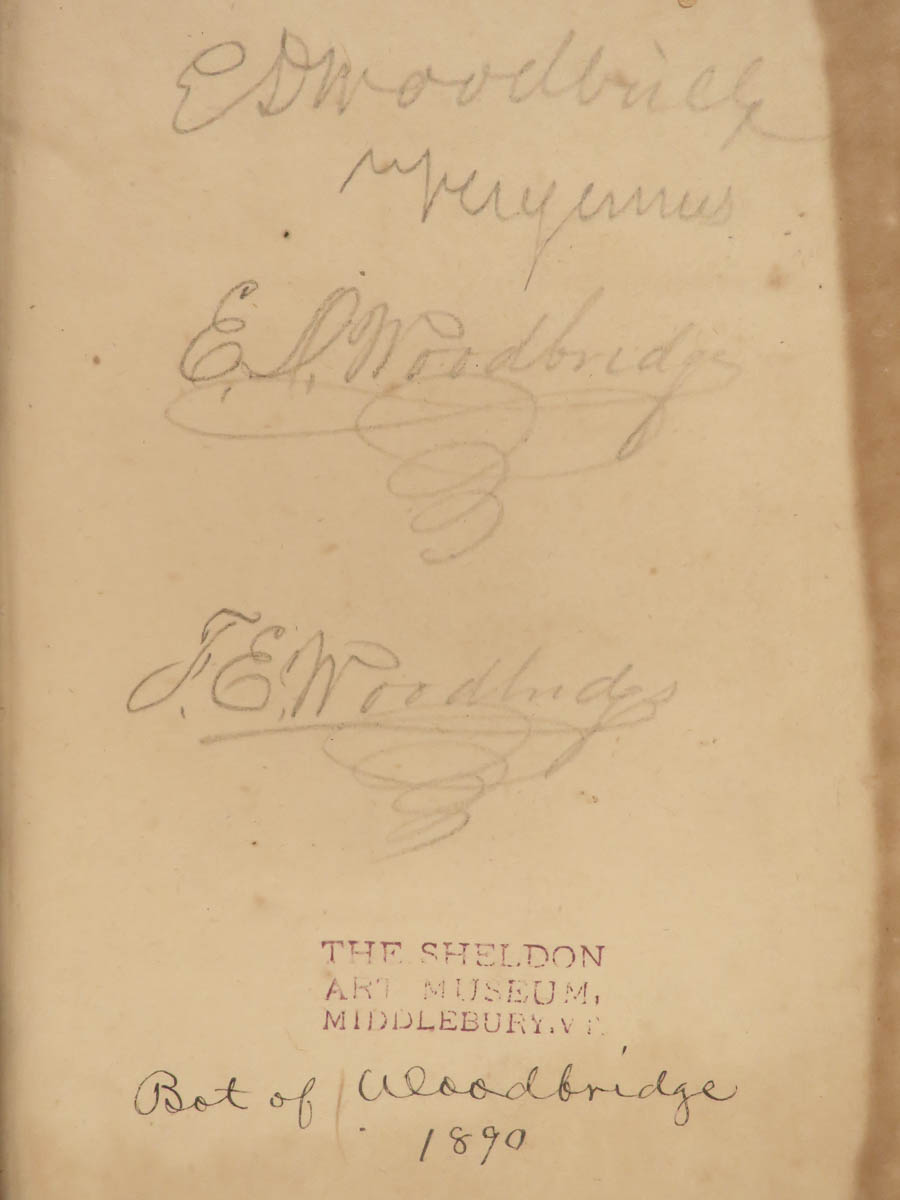 E D Woodbridge
Vergennes
E. D. Woodbridge
F. E. Woodbridge
THE SHELDON
ART MUSEUM,
MIDDLEBURY, VT.
Bot of Woodbridge
1890